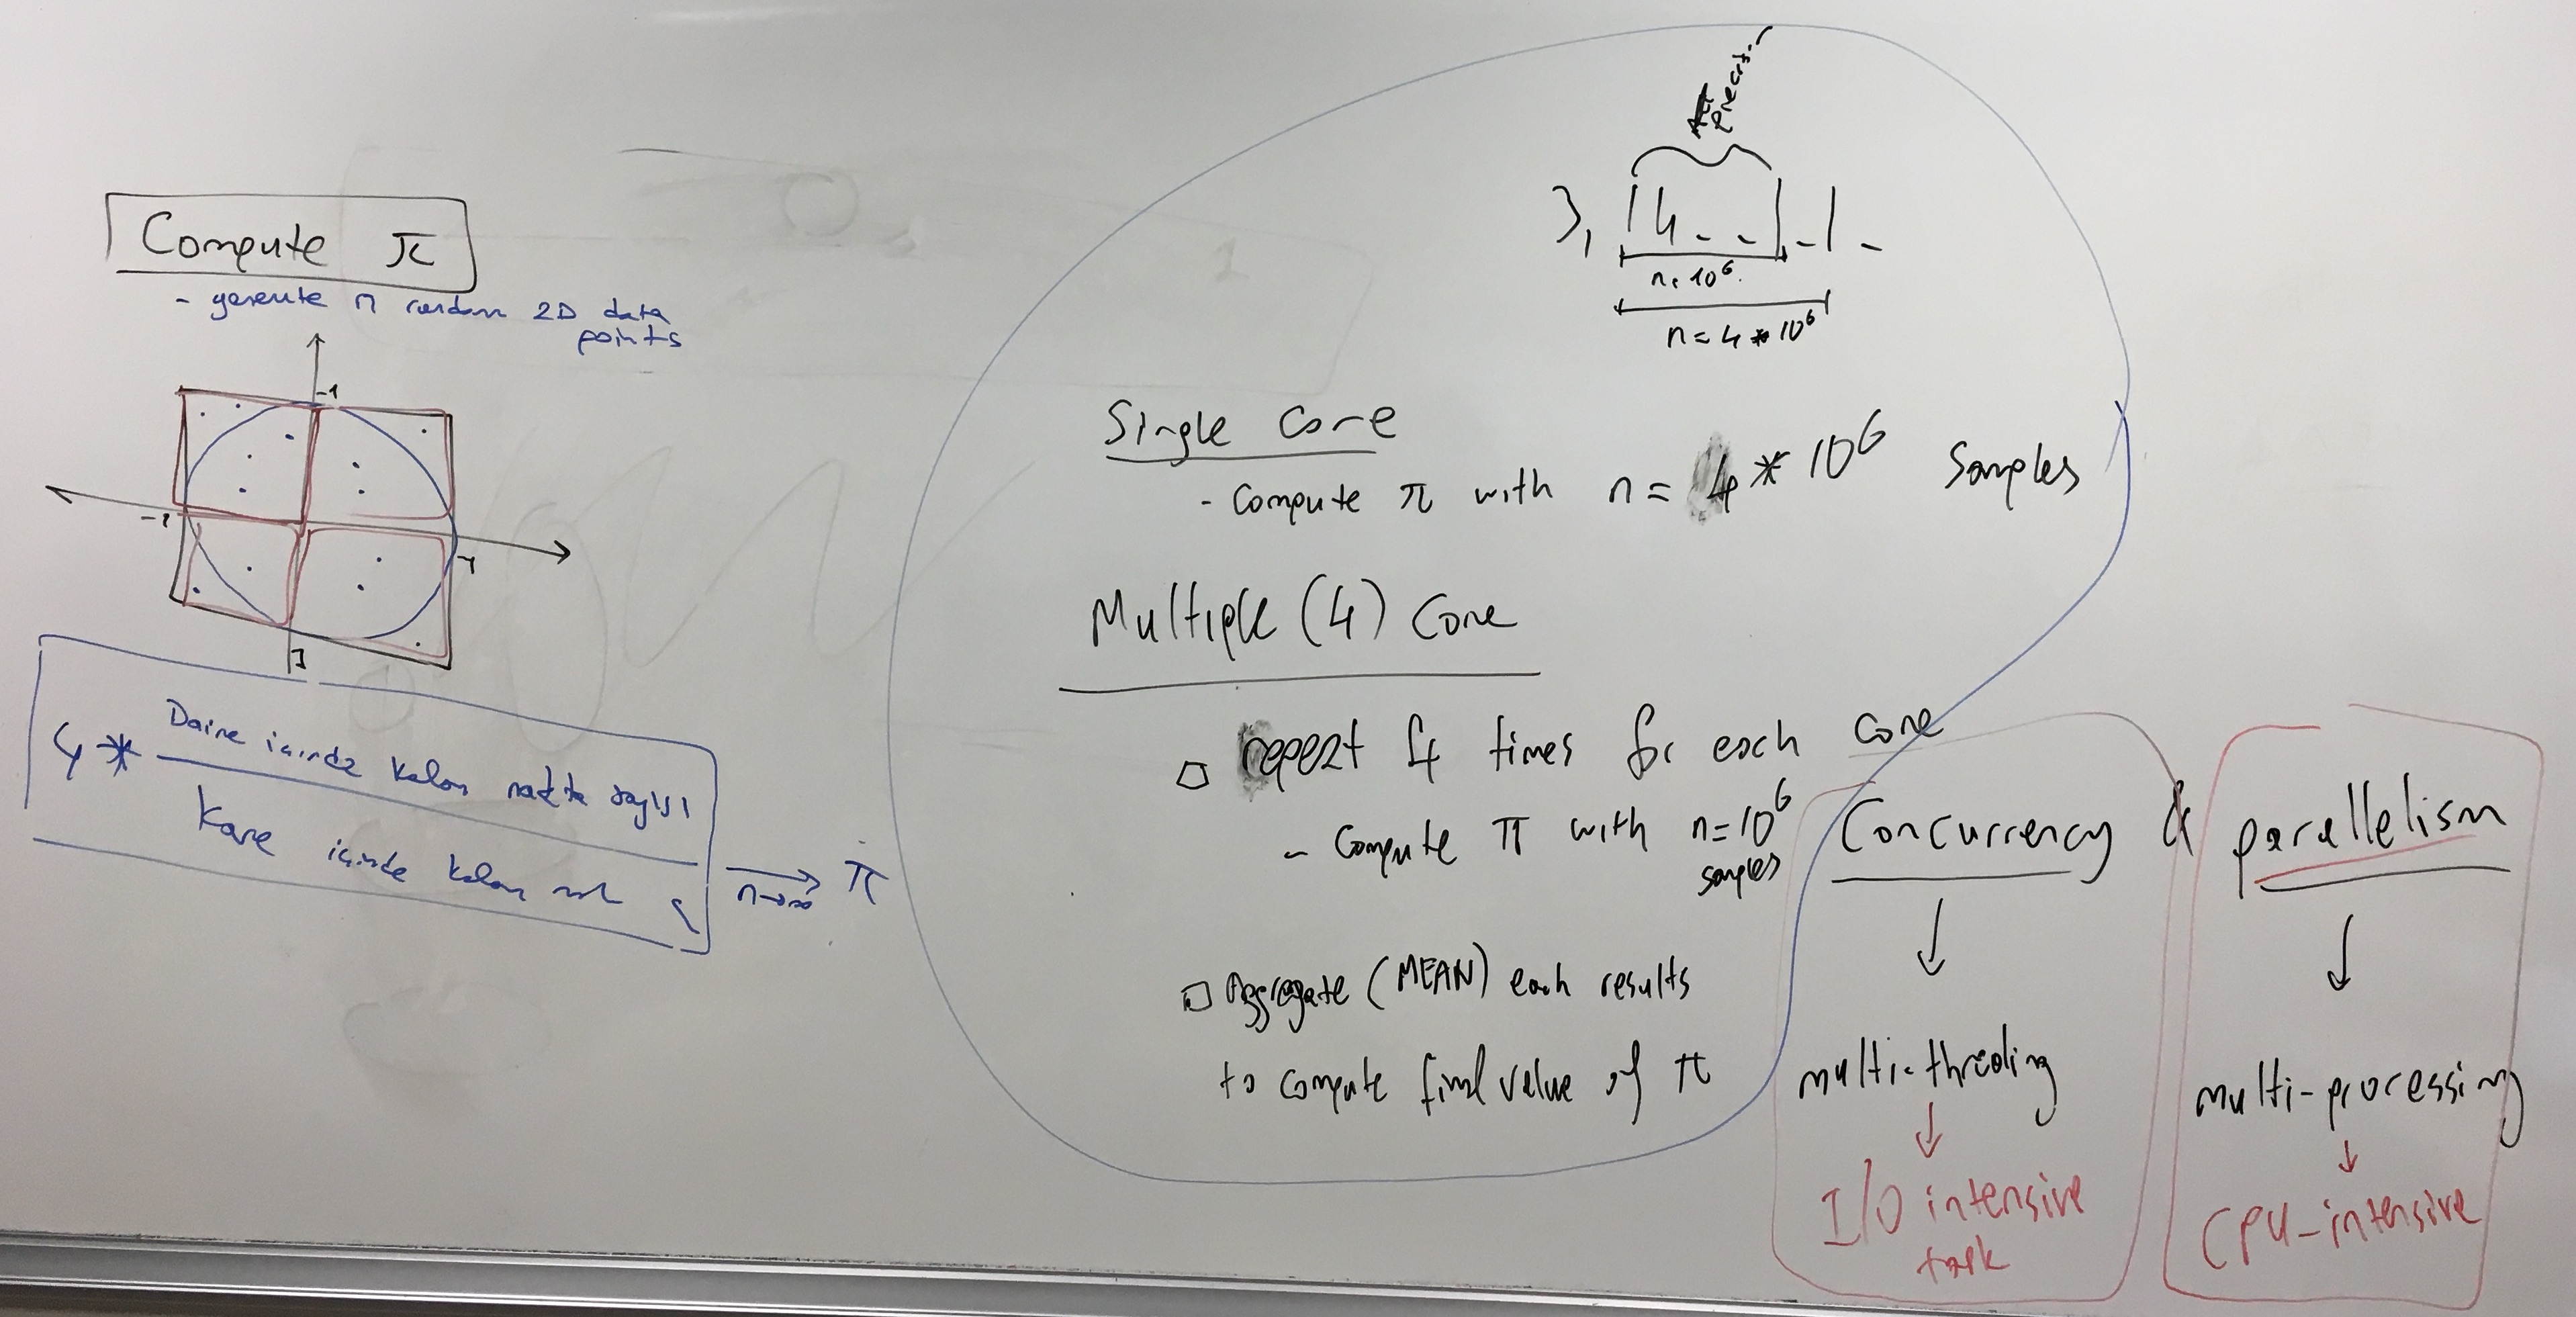 Compute π
- generate n random 2D data
points
-1
-1
1
1
4 * Daire içinde kalan nokta sayısı
Kare içinde kalan nok s
n→∞ π
Precis.
3, 14 _ _ | _ | _
n=10⁶
n = 4 * 10⁶
Single Core
- Compute π with n = 4 * 10⁶ Samples
Multiple (4) Core
□ repeat 4 times for each core
- Compute π with n=10⁶
samples
□ Aggregate (MEAN) each results
to compute final value of π
Concurrency & parallelism
↓ ↓
multi-threding multi-processing
↓ ↓
I/O intensive
task
CPU-intensive